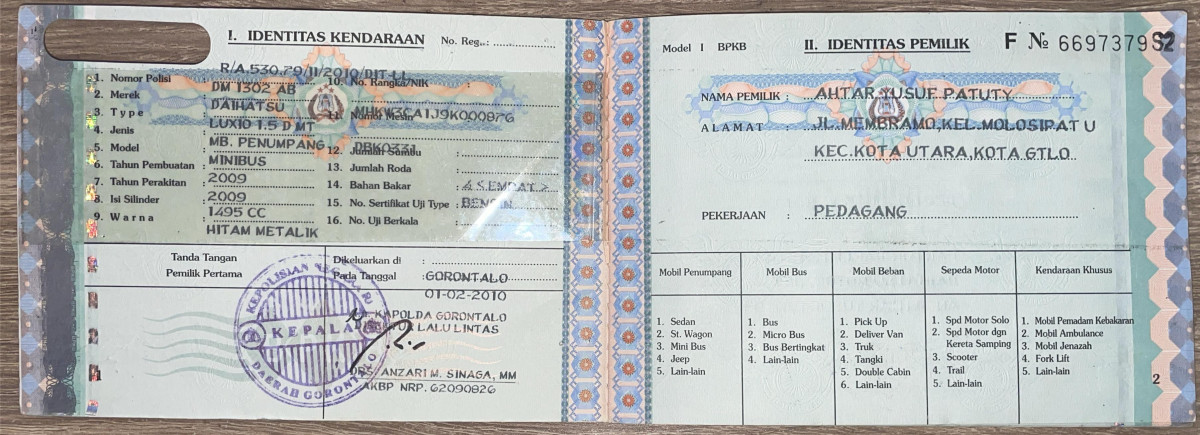 I. IDENTITAS KENDARAAN No. Reg. :
R/A.530.79/II/2010/DIT-LL
1. Nomor Polisi : DM 1302 AB
2. Merek : DAIHATSU
3. Type : LUXIO 1.5 D MT
4. Jenis : MB. PENUMPANG
5. Model : MINIBUS
6. Tahun Pembuatan : 2009
7. Tahun Perakitan : 2009
8. Isi Silinder : 1495 CC
9. Warna : HITAM METALIK
10. No. Rangka/NIK :
11. Nomor Mesin
12. Jumlah Sumbu :
13. Jumlah Roda :
14. Bahan Bakar : 4 <EMPAT>
15. No. Sertifikat Uji Type : BENSIN
16. No. Uji Berkala :
Tanda Tangan
Pemilik Pertama
Dikeluarkan di :
Pada Tanggal : GORONTALO
01-02-2010
KAPOLDA GORONTALO
LALU LINTAS
DRS. ANZARI M. SINAGA, MM
AKBP NRP. 62090826
KEPOLISIAN NEGARA RI
KEPALA
DAERAH GORONTALO
Model I BPKB II. IDENTITAS PEMILIK F No 6697379 S2
NAMA PEMILIK : AHTAR YUSUF PATUTY
ALAMAT : JL.MEMBRAMO,KEL.MOLOSIPAT U
KEC.KOTA UTARA,KOTA GTLO
PEKERJAAN : PEDAGANG
Mobil Penumpang
1. Sedan
2. St. Wagon
3. Mini Bus
4. Jeep
5. Lain-lain
Mobil Bus
1. Bus
2. Micro Bus
3. Bus Bertingkat
4. Lain-lain
Mobil Beban
1. Pick Up
2. Deliver Van
3. Truk
4. Tangki
5. Double Cabin
6. Lain-lain
Sepeda Motor
1. Spd Motor Solo
2. Spd Motor dgn
Kereta Samping
3. Scooter
4. Trail
5. Lain-lain
Kendaraan Khusus
1. Mobil Pemadam Kebakaran
2. Mobil Ambulance
3. Mobil Jenazah
4. Fork Lift
5. Lain-lain
2